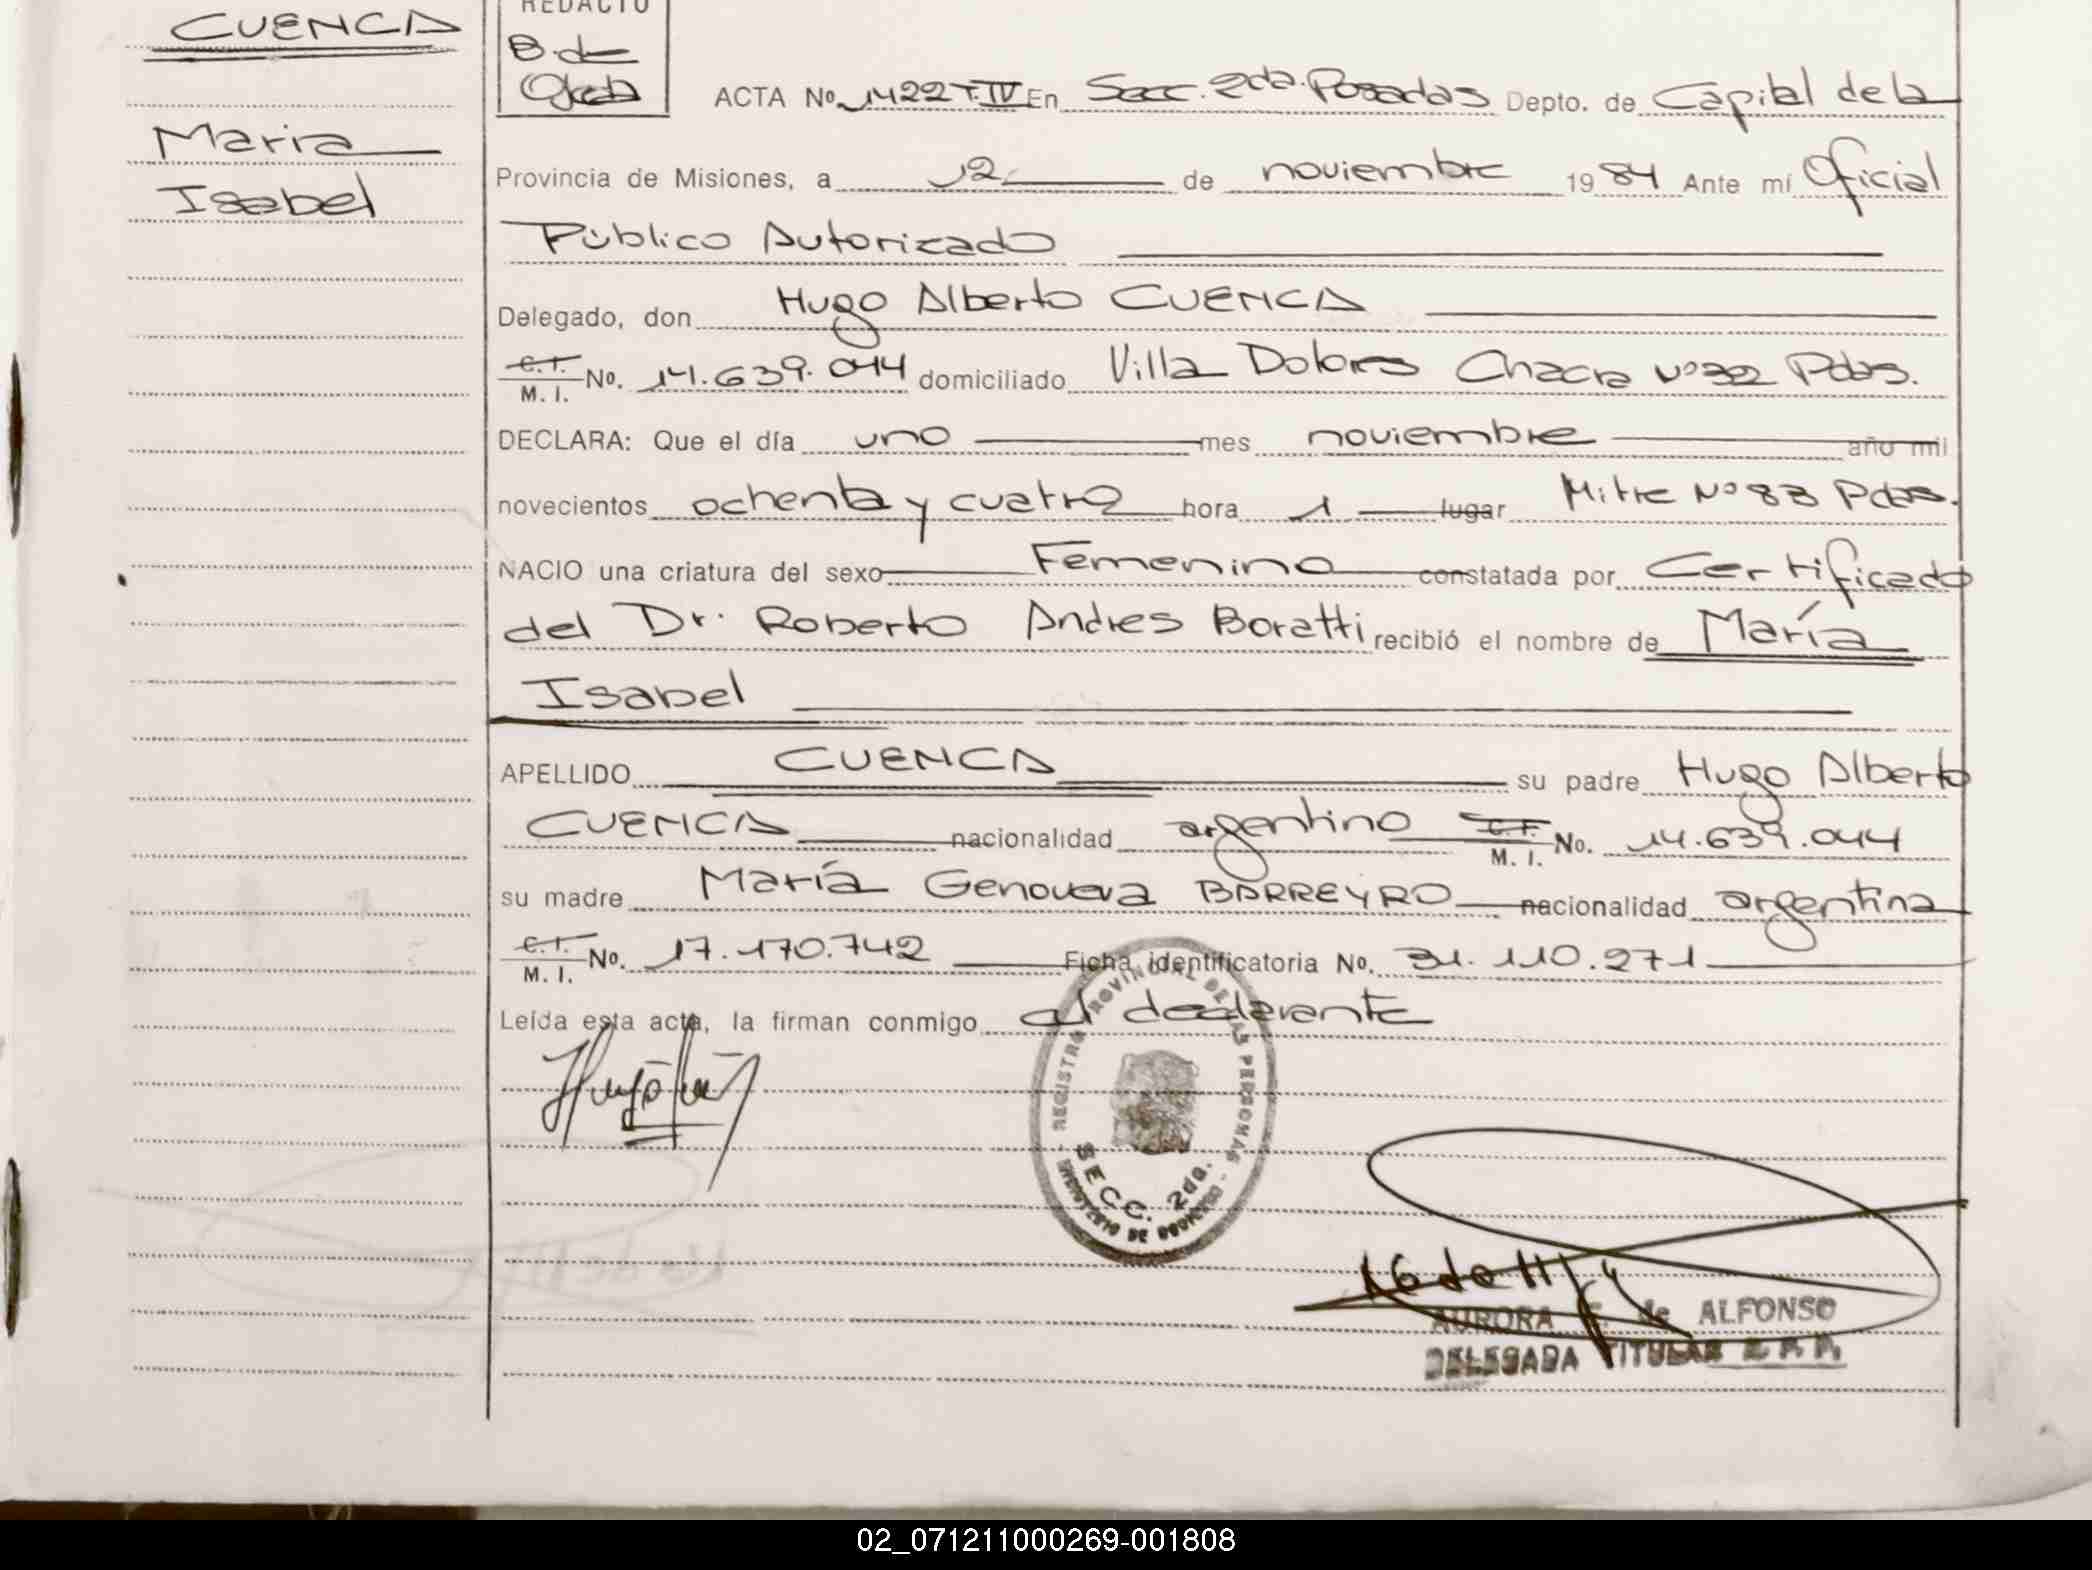 CUENCA
Maria
Isabel
REDACTO
B. de
Ojeda
ACTA No. 1422 T. IV En Secc. 2da. Posadas Depto. de Capital de la
Provincia de Misiones, a 12 de noviembre 1984 Ante mí Oficial
Público Autorizado
Delegado, don Hugo Alberto CUENCA
C.I. M. I. No. 14.639.044 domiciliado Villa Dolores Chacra Nº 32 Pdas.
DECLARA: Que el día uno mes noviembre año mil
novecientos ochenta y cuatro hora 1 lugar Mitre Nº 83 Pdas.
NACIO una criatura del sexo Femenino constatada por Certificado
del Dr. Roberto Andres Boratti recibió el nombre de María
Isabel
APELLIDO CUENCA su padre Hugo Alberto
CUENCA nacionalidad argentino C.I. M. I. No. 14.639.044
su madre María Genoveva BARREYRO nacionalidad argentina
C.I. M. I. No. 17.170.742 Ficha identificatoria No. 31.110.271
Leída esta acta, la firman conmigo el declarante
REGISTRO PROVINCIAL DE LAS PERSONAS
SECC. 2da.
MINISTERIO DE GOBIERNO
AURORA de ALFONSO
DELEGADA TITULAR R. P. P.
02_071211000269-001808